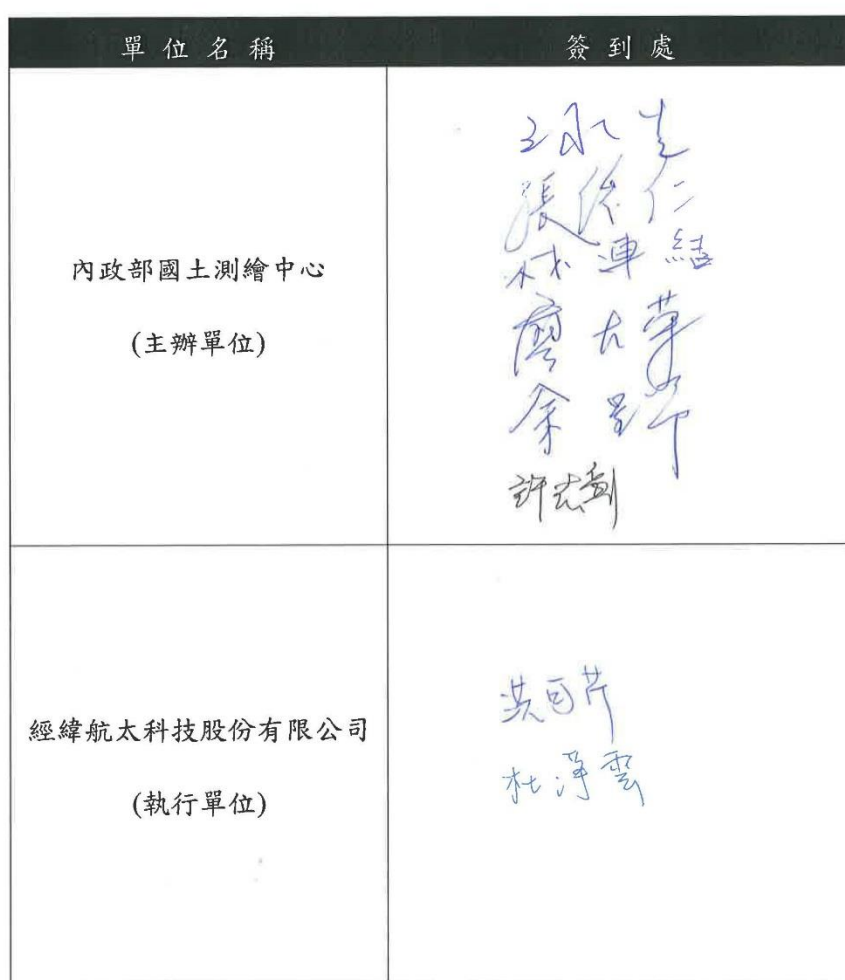 單位名稱 簽到處
內政部國土測繪中心
(主辦單位)
張 仁
林連結
廖大華
余
許志
經緯航太科技股份有限公司
(執行單位)
洪 芹
杜淨雲